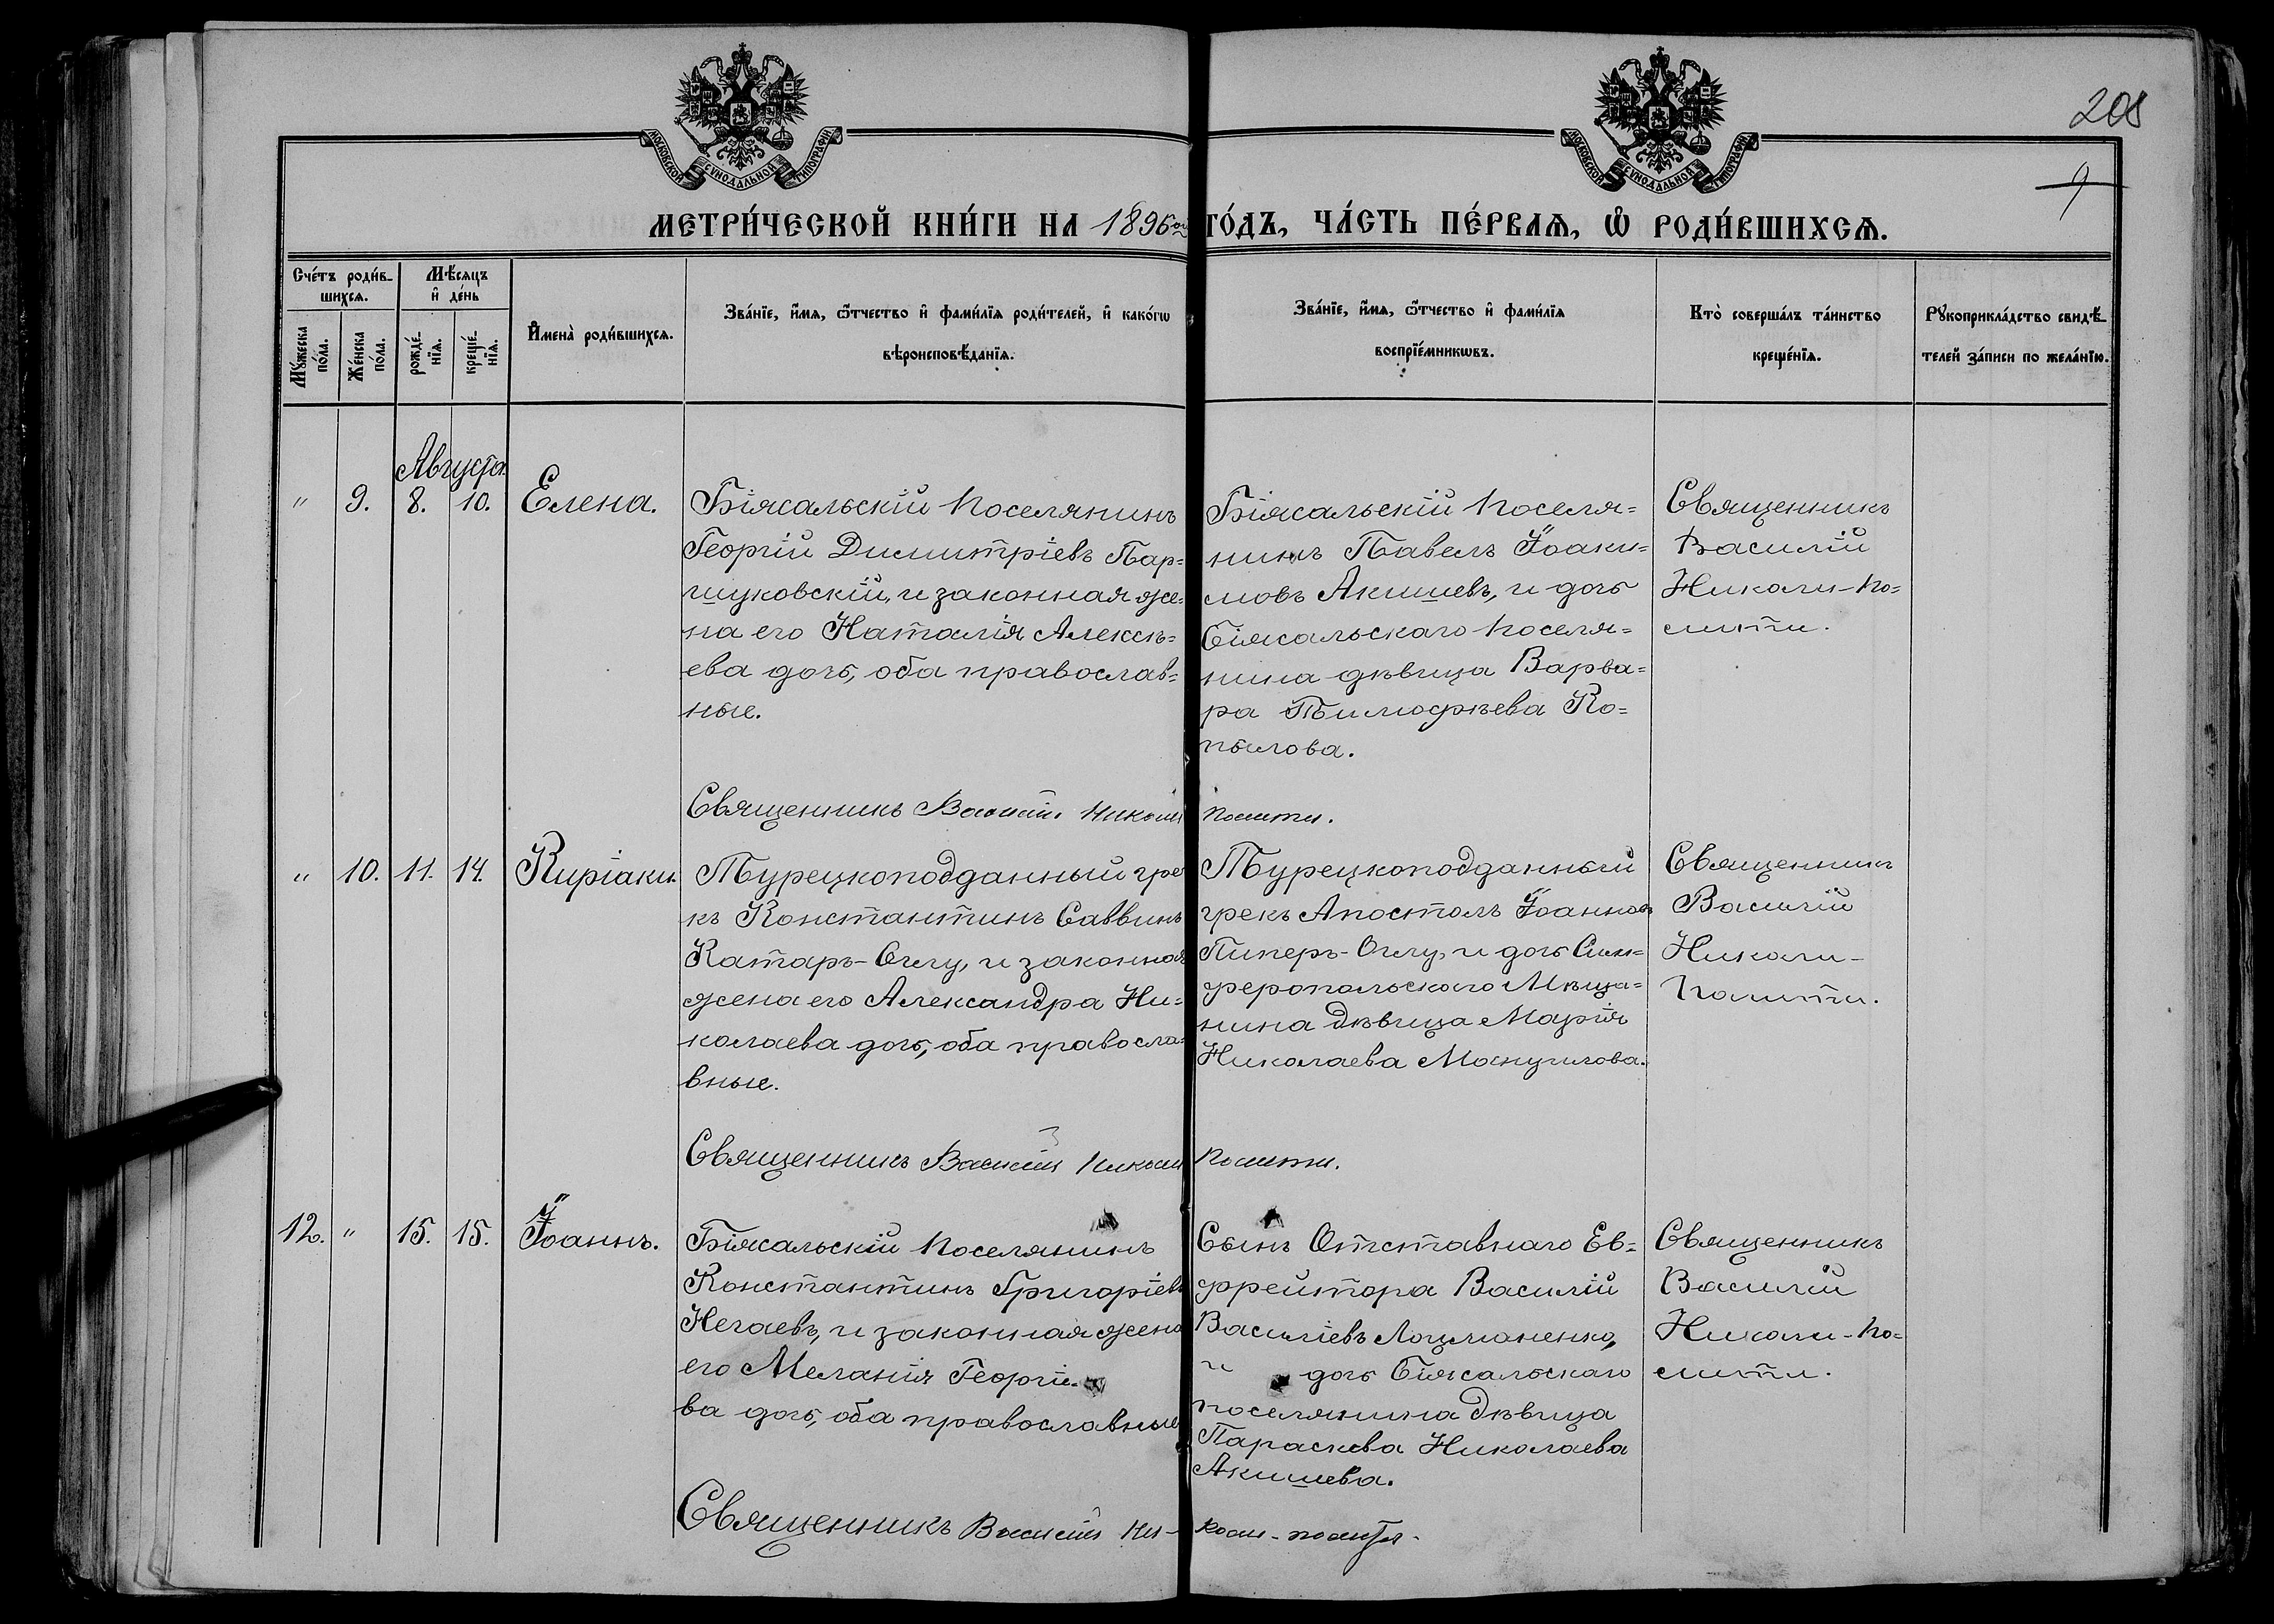 208
9
МОСКОВСКОЙ СѴНОДАЛЬНОЙ ТИПОГРАФІИ
МОСКОВСКОЙ СѴНОДАЛЬНОЙ ТИПОГРАФІИ
МЕТРИ́ЧЕСКОЙ КНИ́ГИ НА 1896ой ГО́ДЪ, ЧА́СТЬ ПЕ́РВАѦ, Ѽ РОДИ́ВШИХСѦ.
Сче́тъ роди́в-
шихсѧ.
Мꙋ́жеска по́ла.
Же́нска по́ла.
Мѣ́сѧцъ
и҆ де́нь
рожде́-
нїѧ.
креще́-
нїѧ.
И҆мена̀ роди́вшихсѧ.
Зва́нїе, и҆́мѧ, ѻ҆́тчество и҆ фами́лїѧ роди́телей, и҆ како́гѡ
вѣроисповѣ́данїѧ.
Зва́нїе, и҆́мѧ, ѻ҆́тчество и҆ фами́лїѧ
воспрїе́мникѡвъ.
Кто̀ соверша́лъ та́инство
креще́нїѧ.
Рꙋкоприкла́дство свидѣ́-
телей за́писи по жела́нїю.
Августа
" 9. 8. 10. Елена.
Біясальскій поселянинъ
Георгій Димитріевъ Пар=
шуковскій, и законная же=
на его Наталія Алексѣ=
ева дочь, оба православ=
ные.
Біясальскій поселя=
нинъ Павелъ Іоаки=
мовъ Акишевъ, и дочь
Біясальскаго поселя=
нина дѣвица Варва=
ра Тимофѣева Ко=
пылова.
Священникъ
Василій
Николи-По=
лити.
Священникъ Василій Николи Полити.
" 10. 11. 14. Киріаки.
Турецкоподданный гре
къ Константинъ Саввинъ
Катаръ-Оглу, и законная
жена его Александра Ни=
колаева дочь, оба правосла=
вные.
Турецкоподданный
грекъ Апостолъ Іоанновъ
Пиперъ-Оглу, и дочь Сим=
феропольскаго Мѣща=
нина дѣвица Марія
Николаева
Священникъ
Василій
Николи-
Полити.
Священникъ Василій Николи Полити.
12. " 15. 15. Іоаннъ.
Біясальскій поселянинъ
Константинъ Григоріевъ
Нечаевъ, и законная жена
его Меланія Георгіе
ва дочь, оба православные
Сынъ Отставнаго Ев=
фрейтора Василій
Василіевъ Лоцманенко,
и дочь Біясальскаго
поселянина дѣвица
Параскева Николаева
Акишева.
Священникъ
Василій
Николи-По=
лити.
Священникъ Василій Ни-коли-полити.